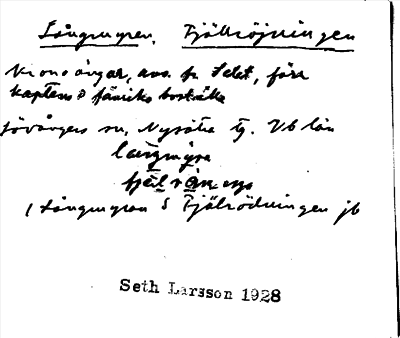 Långmyren, Fjällröjningen
Kronoängar, avs. fr. Selet, förr
kaptens o fänriks boställe
Lövångers sn, Nysätra tg. Vb län
laŋmyra
(Långmyren o Fjälrödningen jb
Seth Larsson 1928